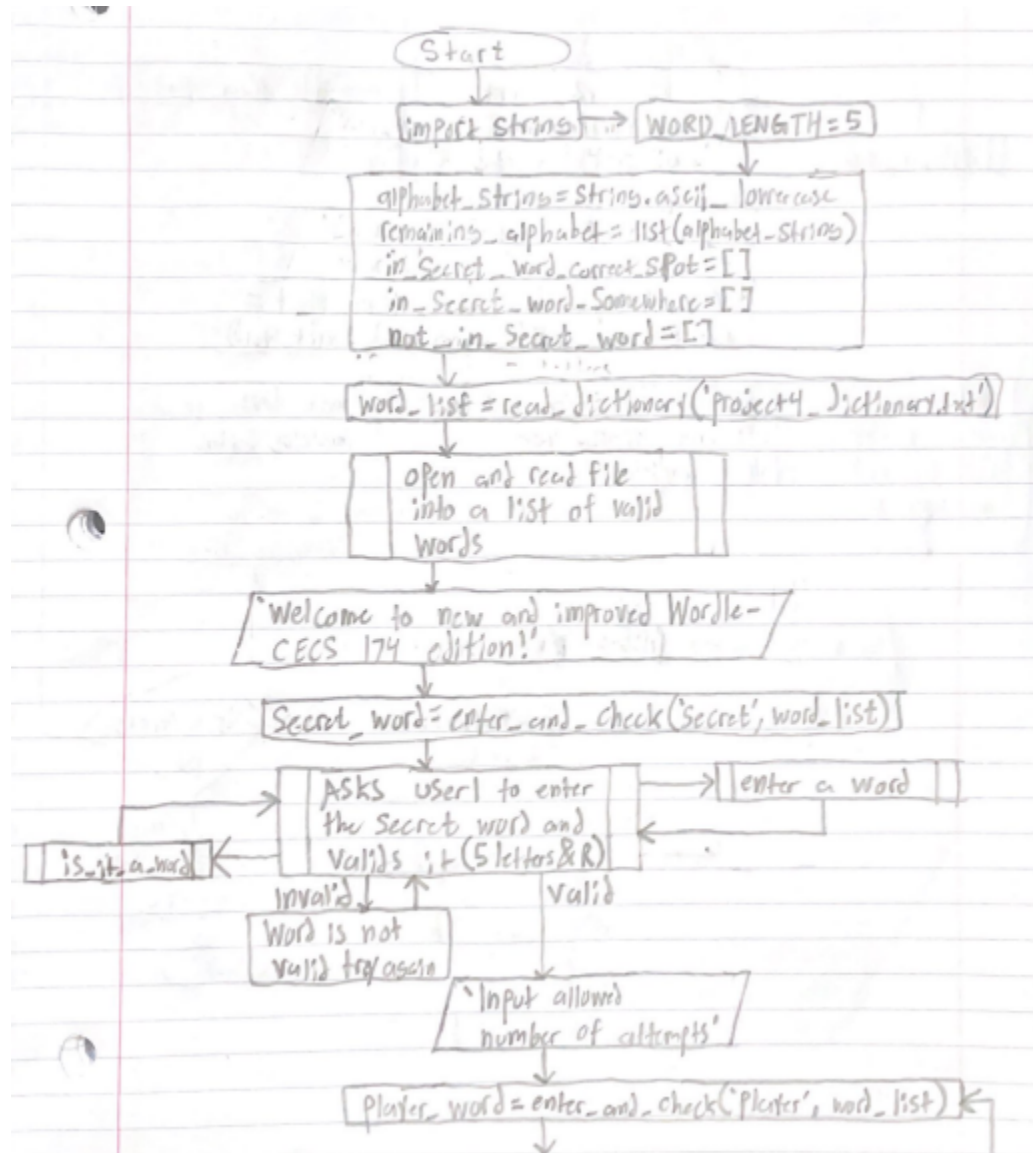 Start
import string
WORD_LENGTH = 5
alphabet_string = string.ascii_lowercase
remaining_alphabet = list(alphabet_string)
in_secret_word_correct_spot = []
in_secret_word_somewhere = []
not_in_secret_word = []
word_list = read_dictionary('project4_dictionary.txt')
open and read file
into a list of valid
words
'Welcome to new and improved Wordle-
CECS 174 edition!'
Secret_word = enter_and_check('secret', word_list)
Asks user1 to enter
the secret word and
valids it (5 letters & R)
enter a word
is_it_a_word
invalid
valid
Word is not
valid try again
'Input allowed
number of attempts'
Player_word = enter_and_check('player', word_list)